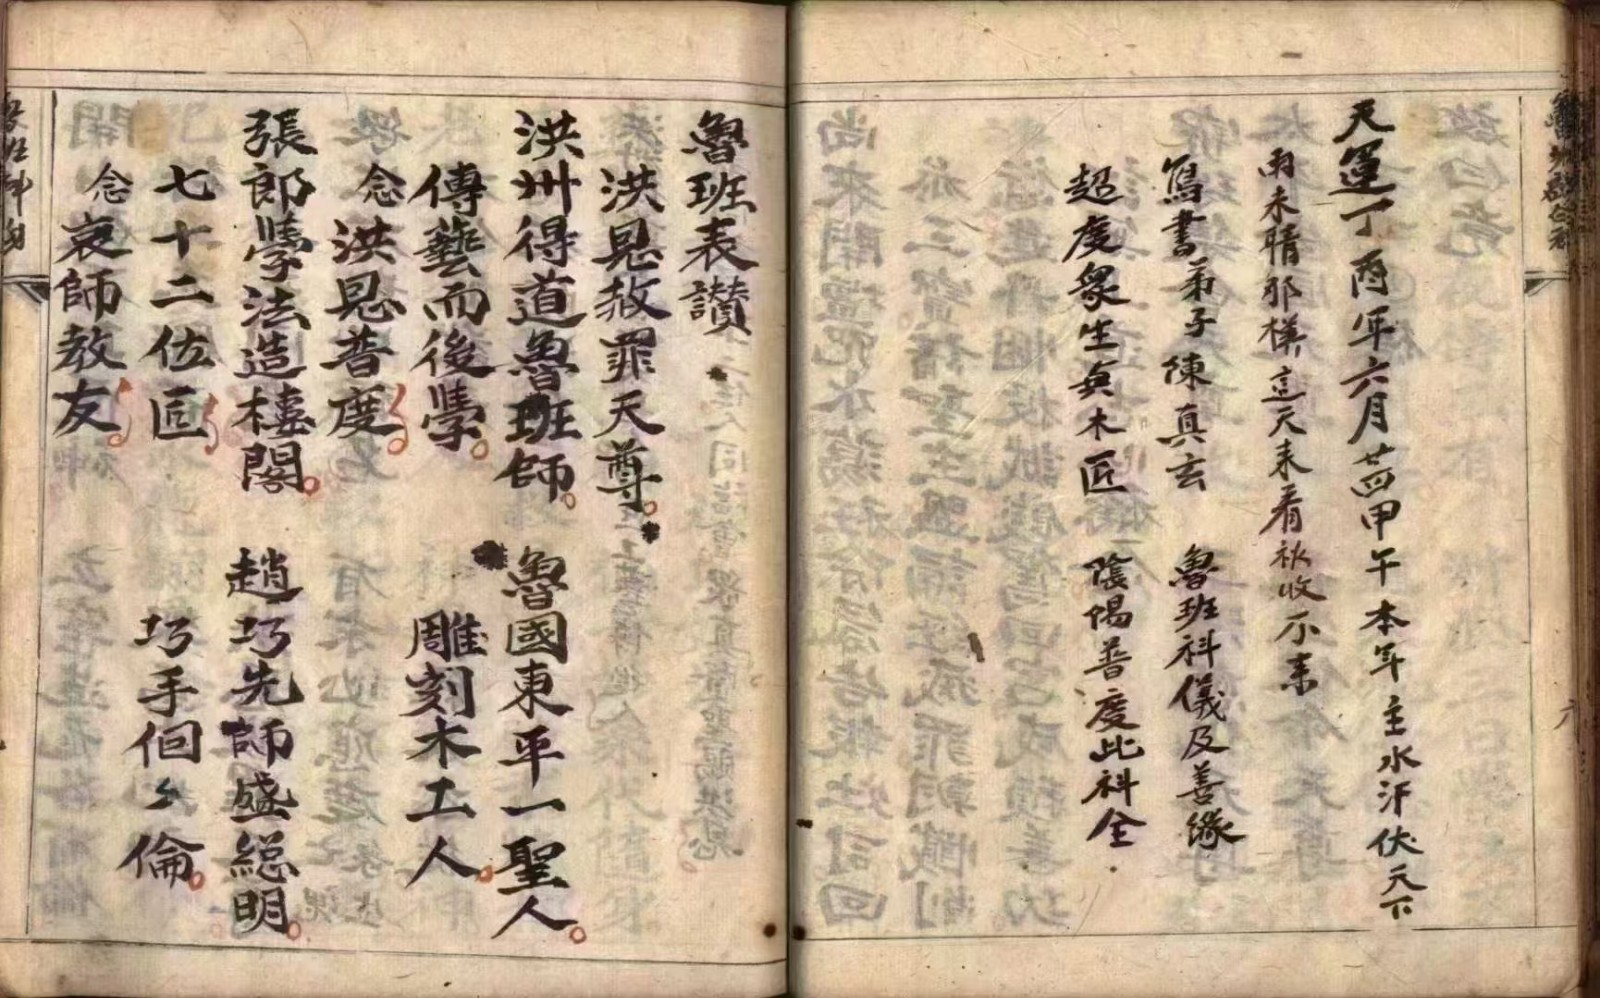 天運丁酉年六月廿四甲午本年主水汗伏天下
雨未晴那樣這天来看秋收不来
寫書弟子陳真玄 魯班科儀及善緣
超度衆生與木匠 陰陽普度此科全
魯班表讃
洪恩赦罪天尊
洪州得道魯班師 魯國東平一聖人
傳藝而後學 雕刻木工人
念洪恩普度
張郎學法造樓閣 趙巧先師盛総明
七十二位匠 巧手個々倫
念哀師教友